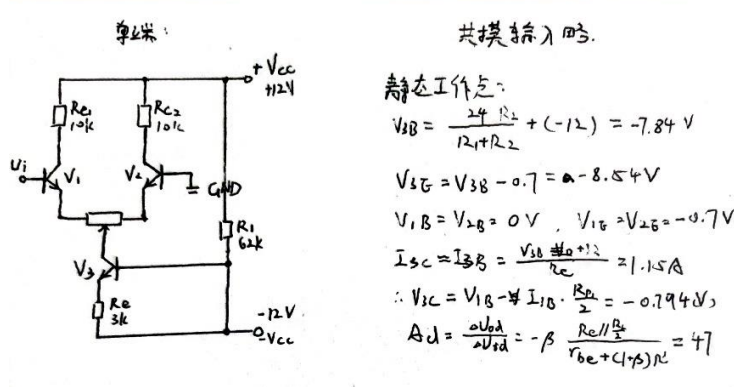 单端:
+Vcc
+12V
Rc1
10k
Rc2
10k
Ui
V1
V2
GND
R1
62k
V3
Re
3k
-12V
-Vcc
共模输入时.
静态工作点:
V3B = 24 R2 / R1+R2 + (-12) = -7.84 V
V3E = V3B - 0.7 = -8.54V
V1B = V2B = 0V , V1E = V2E = -0.7V
I3C ≈ I3E = V3B +12 / Re = 1.15A
∴ V3C = V1B - I1B · RP1 / 2 = -0.794V,
Ad = ΔUod / ΔUid = -β Rc // RL/2 / rbe + (1+β)R' = 47